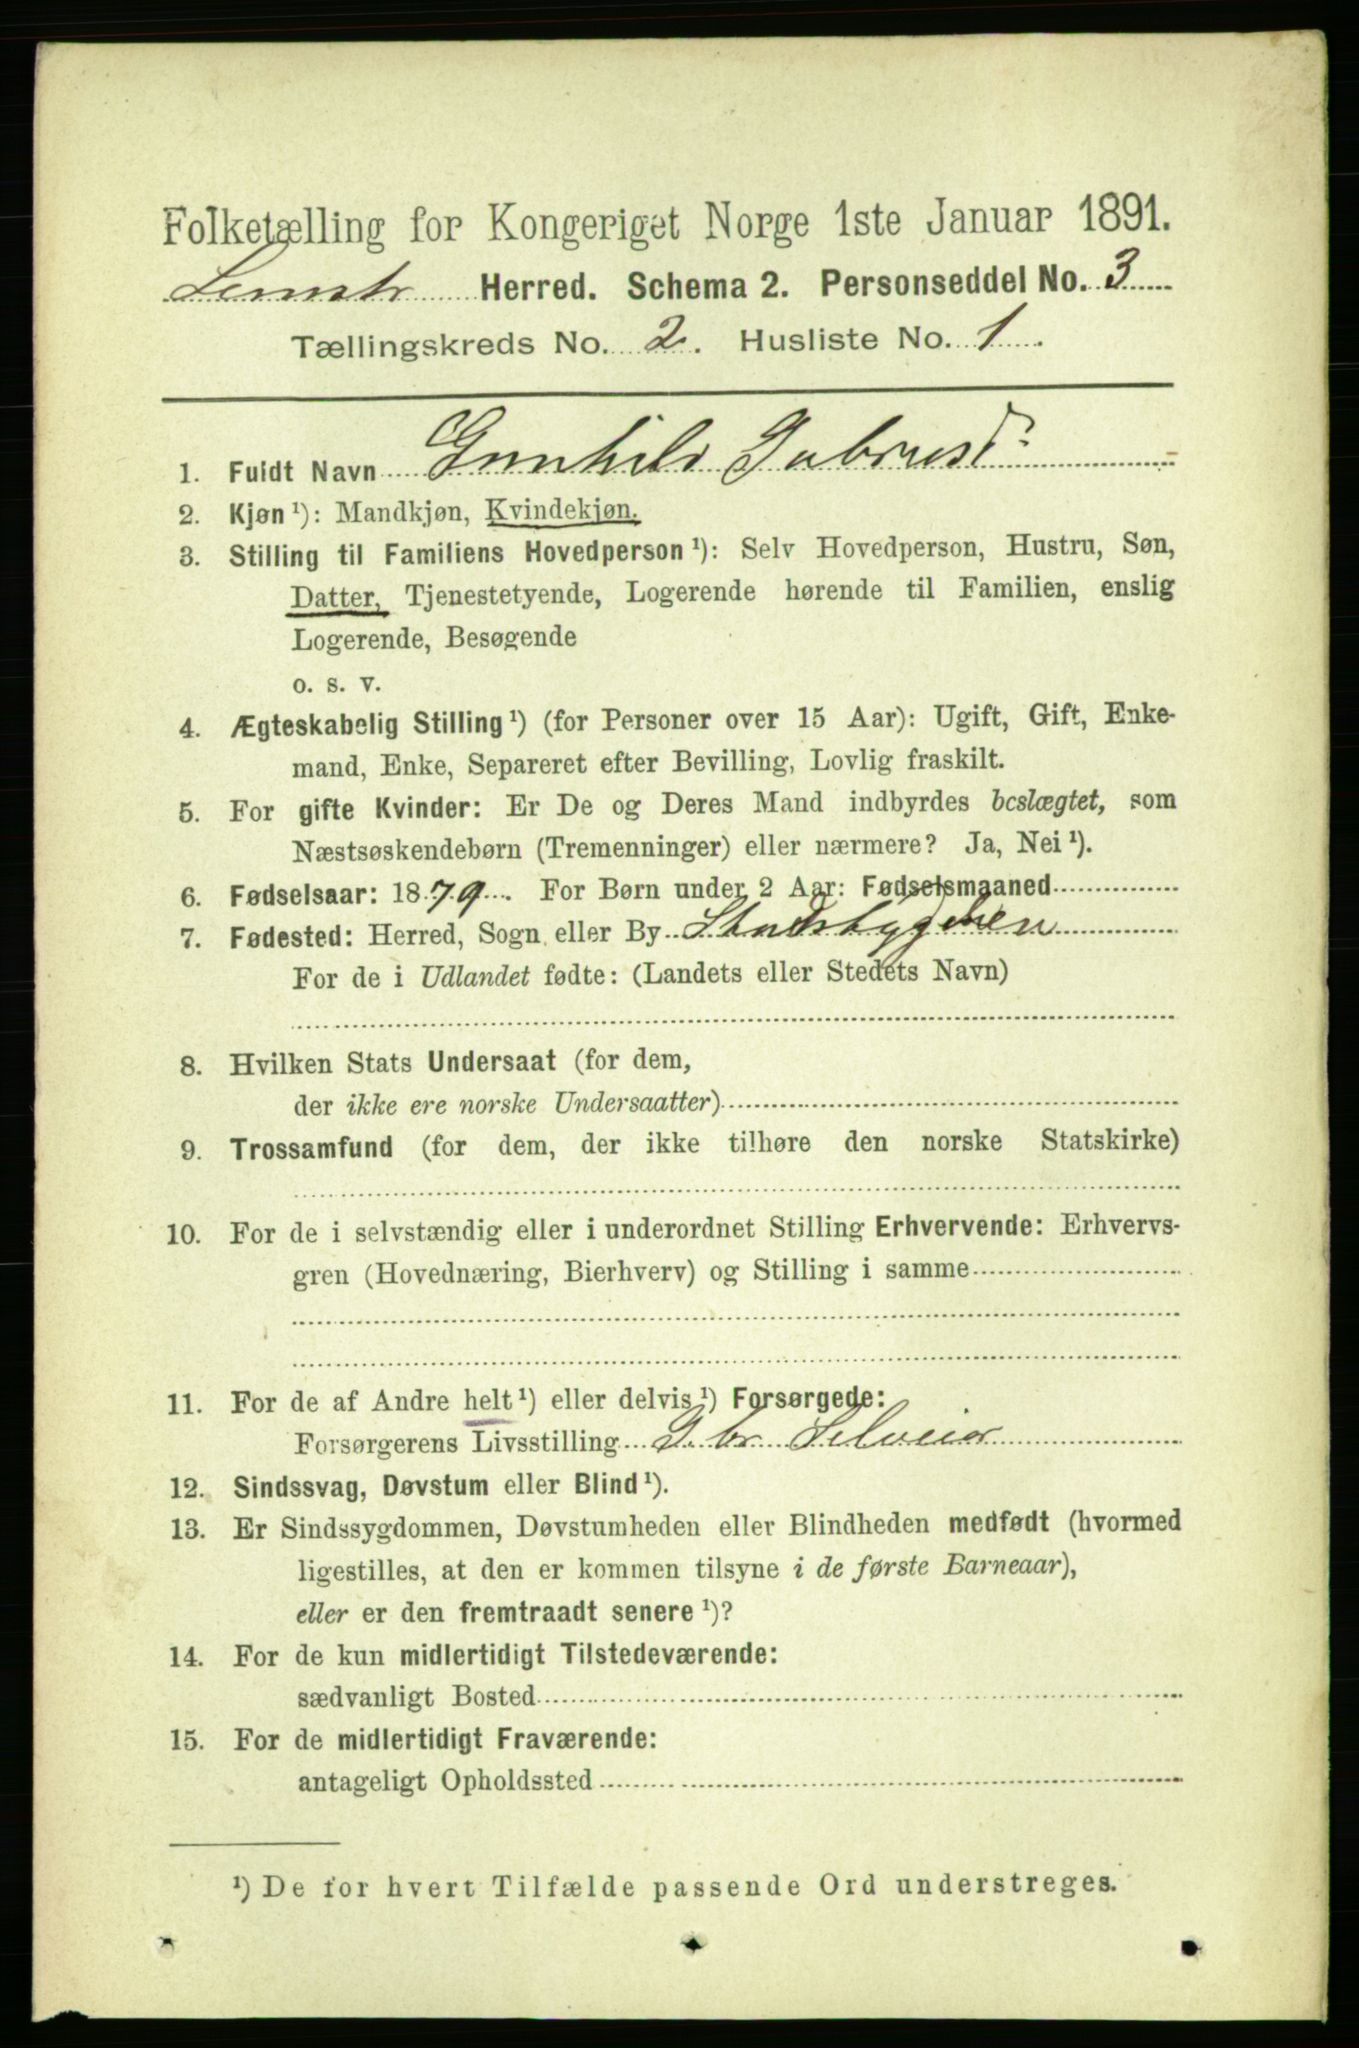 Folketælling for Kongeriget Norge 1ste Januar 1891.
Herred. Schema 2. Personseddel No. 3
Tællingskreds No. 2. Husliste No. 1
1. Fuldt Navn Gunhild
2. Kjøn ¹): Mandkjøn, Kvindekjøn.
3. Stilling til Familiens Hovedperson ¹): Selv Hovedperson, Hustru, Søn,
Datter, Tjenestetyende, Logerende hørende til Familien, enslig
Logerende, Besøgende
o. s. v.
4. Ægteskabelig Stilling ¹) (for Personer over 15 Aar): Ugift, Gift, Enke-
mand, Enke, Separeret efter Bevilling, Lovlig fraskilt.
5. For gifte Kvinder: Er De og Deres Mand indbyrdes beslægtet, som
Næstsøskendebørn (Tremenninger) eller nærmere? Ja, Nei ¹).
6. Fødselsaar: 1879. For Børn under 2 Aar: Fødselsmaaned
7. Fødested: Herred, Sogn eller By Stadsbygden
For de i Udlandet fødte: (Landets eller Stedets Navn)
8. Hvilken Stats Undersaat (for dem,
der ikke ere norske Undersaatter)
9. Trossamfund (for dem, der ikke tilhøre den norske Statskirke)
10. For de i selvstændig eller i underordnet Stilling Erhvervende: Erhvervs-
gren (Hovednæring, Bierhverv) og Stilling i samme
11. For de af Andre helt ¹) eller delvis ¹) Forsørgede:
Forsørgerens Livsstilling G. br. Selveier
12. Sindssvag, Døvstum eller Blind ¹).
13. Er Sindssygdommen, Døvstumheden eller Blindheden medfødt (hvormed
ligestilles, at den er kommen tilsyne i de første Barneaar),
eller er den fremtraadt senere ¹)?
14. For de kun midlertidigt Tilstedeværende:
sædvanligt Bosted
15. For de midlertidigt Fraværende:
antageligt Opholdssted
¹) De for hvert Tilfælde passende Ord understreges.